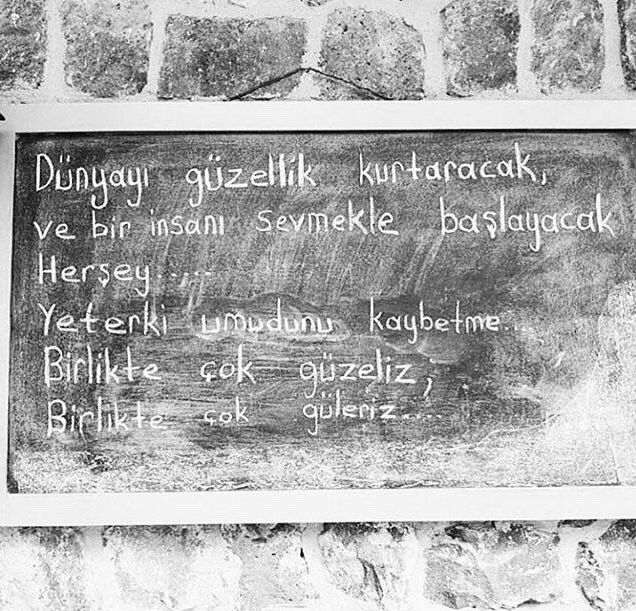 Dünyayı güzellik kurtaracak,
ve bir insanı sevmekle başlayacak
Herşey......
Yeterki umudunu kaybetme....
Birlikte çok güzeliz,
Birlikte çok güleriz....